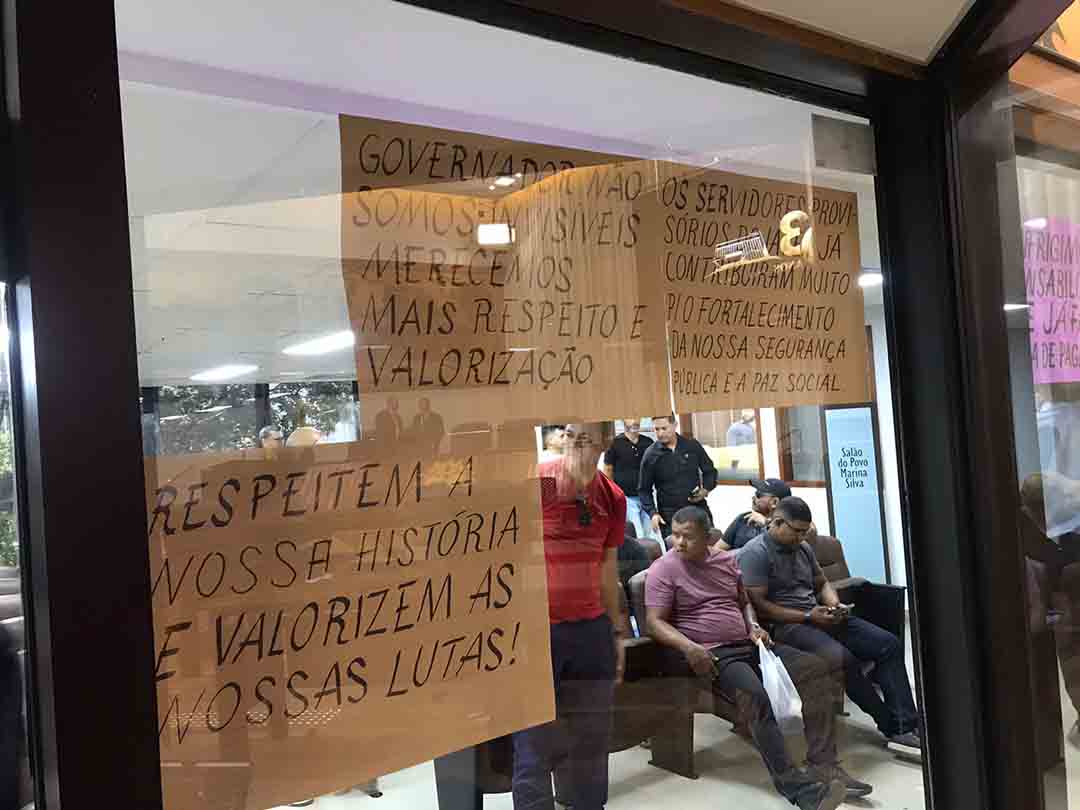 GOVERNADOR NÃO
SOMOS INVISÍVEIS
MERECEMOS
MAIS RESPEITO E
VALORIZAÇÃO
OS SERVIDORES PROVI-
SÓRIOS JÁ
CONTRIBUIRAM MUITO
P/O FORTALECIMENTO
DA NOSSA SEGURANÇA
PÚBLICA E A PAZ SOCIAL.
RESPEITEM A
NOSSA HISTÓRIA
E VALORIZEM AS
NOSSAS LUTAS!
Salão
do Povo
Marina
Silva
E JÁ
DE PAG